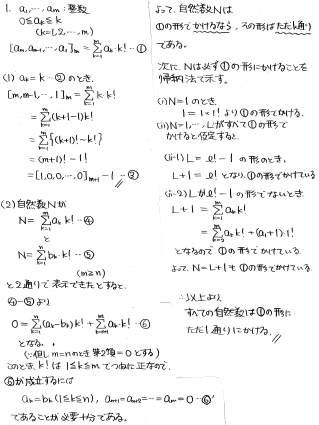 1. a₁, …, aₘ : 整数
0≦aₖ≦k
(k=1,2,…,m)
[aₘ, aₘ₋₁, …, a₁]ₘ = Σ[k=1→m] aₖ·k! …①
(1) aₖ=k …②のとき、
[m, m-1, …, 1]ₘ = Σ[k=1→m] k·k!
= Σ[k=1→m] (k+1-1)k!
= Σ[k=1→m] {(k+1)!-k!}
= (m+1)! - 1!
= [1,0,0,…,0]ₘ₊₁ - 1 …②
(2) 自然数Nが
N = Σ[k=1→m] aₖk! …④
と
N = Σ[k=1→n] bₖ·k! …⑤
(m≧n)
と2通りで表示できたとすると、
④-⑤より
0 = Σ[k=1→n] (aₖ-bₖ)k! + Σ[k=n+1→m] aₖ·k! …⑥
となる。
(∵但しm=nのとき第2項=0とする)
このとき、k!は1≦k≦mでつねに正なので、
⑥が成立するには
aₖ=bₖ (1≦k≦n), aₙ₊₁=aₙ₊₂=…=aₘ=0 …⑥'
であることが必要十分である。
よって、自然数Nは
①の形でかけるなら、その形はただ1通り
である。
次に、Nは必ず①の形にかけることを
帰納法で示す。
(i) N=1のとき、
1=1×1!より①の形でかける。
(ii) N=1,…,Lがすべて①の形で
かけると仮定すると
(ii-1) L=ℓ!-1の形のとき、
L+1=ℓ!となり、①の形でかけている
(ii-2) Lがℓ!-1の形でないとき
L+1 = Σ[k=1→m] aₖk!
となるので①の形でかけている。
よって、N=L+1も①の形でかけている。
∴以上より、
すべての自然数は①の形に
ただ1通りにかける。